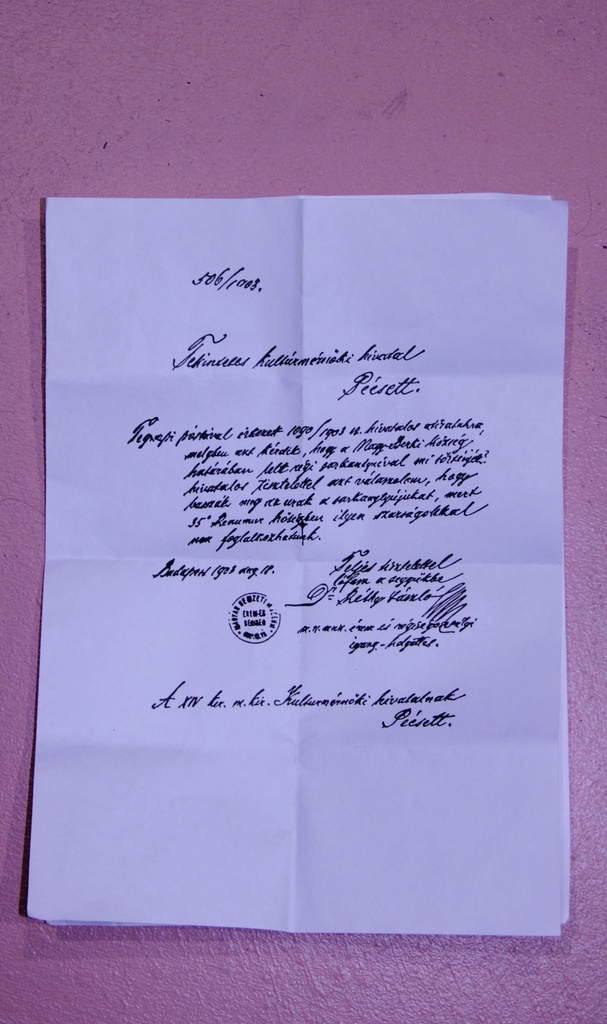 506/1903.
Tekintetes Kultúrmérnöki hivatal
Pécsett.
Tegnapi postával érkezett 1090/1903 sz. hivatalos átiratukra,
melyben azt kérdik, hogy a Nagy-Berki község
határában lelt régi sarkantyúval mi történjék?
hivatalos tisztelettel azt válaszolom, hogy
basszák meg az urak a sarkantyújukat, mert
35° Reaumur hőségben ilyen szarságokkal
nem foglalkozhatunk.
Budapest 1903 aug 18.
Teljes tisztelettel
Dr. Réthy László
MAGYAR NEMZETI
ÉREM-ÉS
m. n. muz. érem és régiségosztályi
igazg-helyettes.
A XIV ker. m. kir. Kultúrmérnöki hivatalnak
Pécsett.